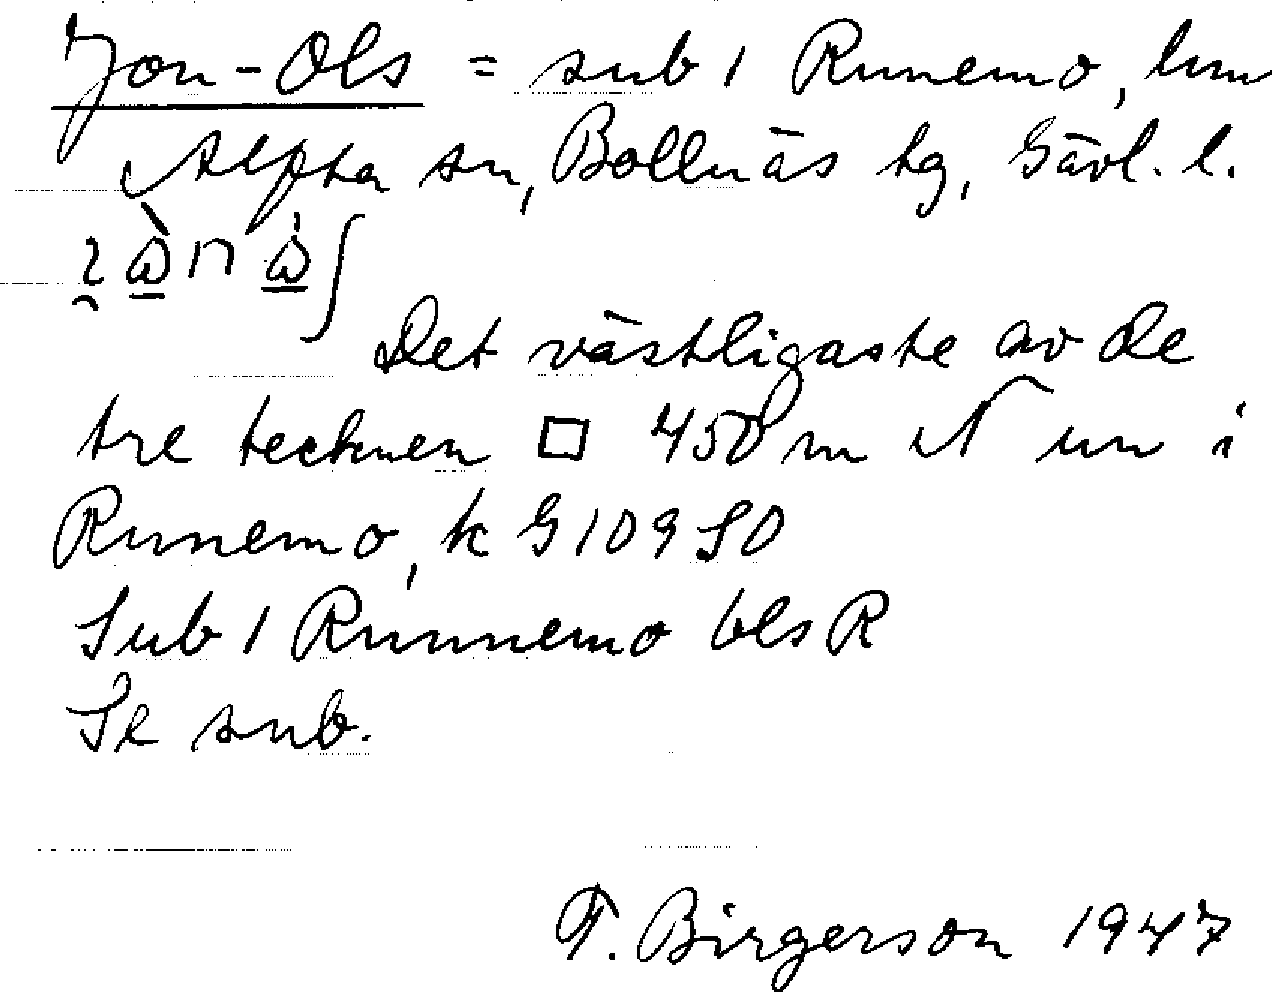 Jon-Ols = sub 1 Runemo, hm
Alfta sn, Bollnäs tg, Gävl. l.
Det västligaste av de
tre tecknen □ 450 m N um i
Runemo, k G 109 SO
Sub 1 Runnemo bls R
Se sub.
T. Birgerson 1947